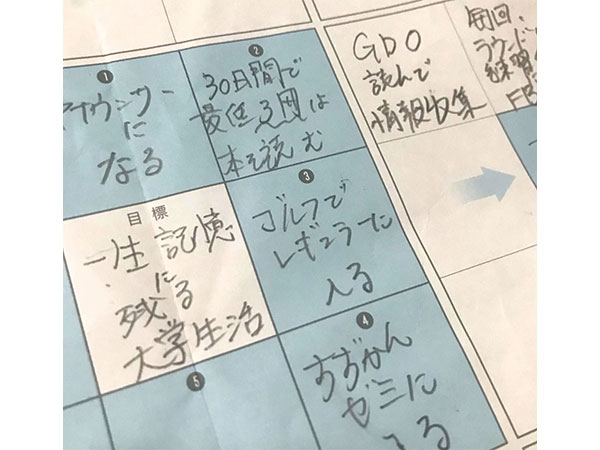 ❶
アナウンサー
に
なる
❷
30日間で
最低3冊は
本を読む
GDO
読んで
情報収集
毎回、
ラウンド
練習
FB
目標
一生記憶
に
残る
大学生活
❸
ゴルフで
レギュラーに
入る
❹
すずかん
ゼミに
入る
❺